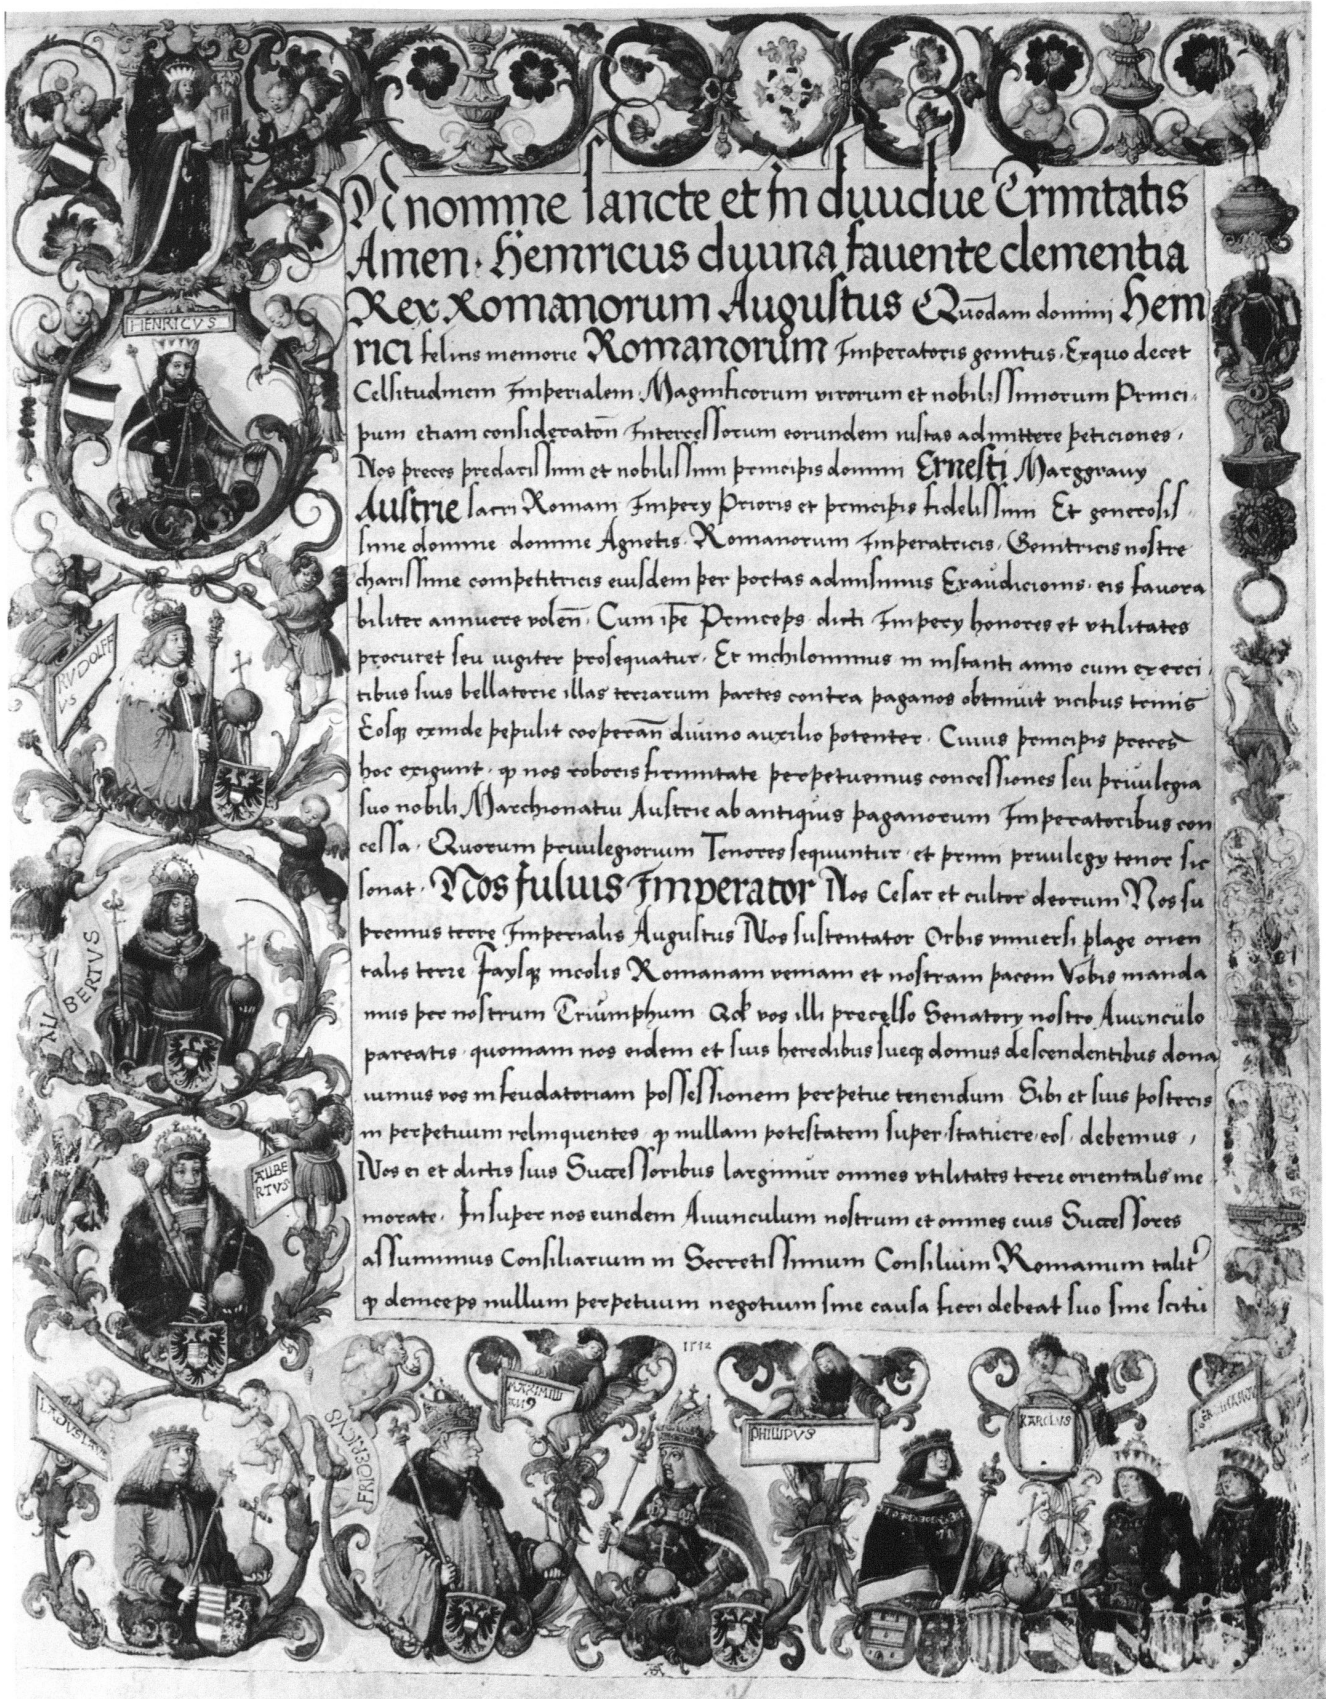 HENRICVS
RVDOLFF
VS
ALBERTVS
ALBE
RTVS
LADVSLAV
FRIDERICVS
MAXIMILI
AN9
1512
PHILIPPVS
KAROLVS
In nomine sancte et In diuidue Trinitatis
Amen · Heinricus diuina fauente clementia
Rex Romanorum Augustus Quōdam domini Hein
rici felicis memorie Romanorum Imperatoris genitus · Exquo decet
Celsitudinem Imperialem · Magnificorum virorum et nobilissimorum Princi-
pum etiam consideratōn Intercessorum eorundem iustas admittere peticiones ·
Nos preces preclarissimi et nobilissimi principis domini Ernesti Marggrauy
Austrie sacri Romani Impery Prioris et principis fidelissimi Et generosis-
sime domine domine Agnetis · Romanorum Imperatricis · Genitricis nostre
charissime competitricis eiusdem per portas admisimus Exaudicionis · eis fauora
biliter annuere volen̄ · Cum ip̄e Princeps dicti Impery honores et vtilitates
procuret seu iugiter prosequatur · Et nichilominus in instanti anno cum exerci-
tibus suis bellatorie illas terrarum partes contra paganos obtinuit vicibus trinis
Eosq; exinde pepulit cooperan̄ diuino auxilio potenter · Cuius principis preces
hoc exigunt · qꝫ nos roboris firmitate perpetuemus concessiones seu priuilegia
suo nobili Marchionatui Austrie ab antiquis paganorum Imperatoribus con
cessa · Quorum priuilegiorum Tenores sequuntur · et primi priuilegy tenor sic
sonat · Nos Iulius Imperator Nos Cesar et cultor deorum Nos su
premus terre Imperialis Augustus Nos sustentator Orbis vniuersi plage orien
talis terre Faysq; incolis Romanam veniam et nostram pacem Vobis manda
mus per nostrum Triumphum Qd vos illi precelso Senatory nostro Auunculo
pareatis · quoniam nos eidem et suis heredibus sueq; domus descendentibus dona
uimus vos in feudatoriam possessionem perpetue tenendum Sibi et suis posteris
in perpetuum relinquentes · qꝫ nullam potestatem super statuere eos · debemus ·
Nos ei et dictis suis Successoribus largimur omnes vtilitates terre orientalis me
morate · Insuper nos eundem Auunculum nostrum et omnes eius Successores
assumimus Consiliarium in Secretissimum Consilium Romanum talit̄
qꝫ deinceps nullum perpetuum negotium sine causa fieri debeat suo sine scitu